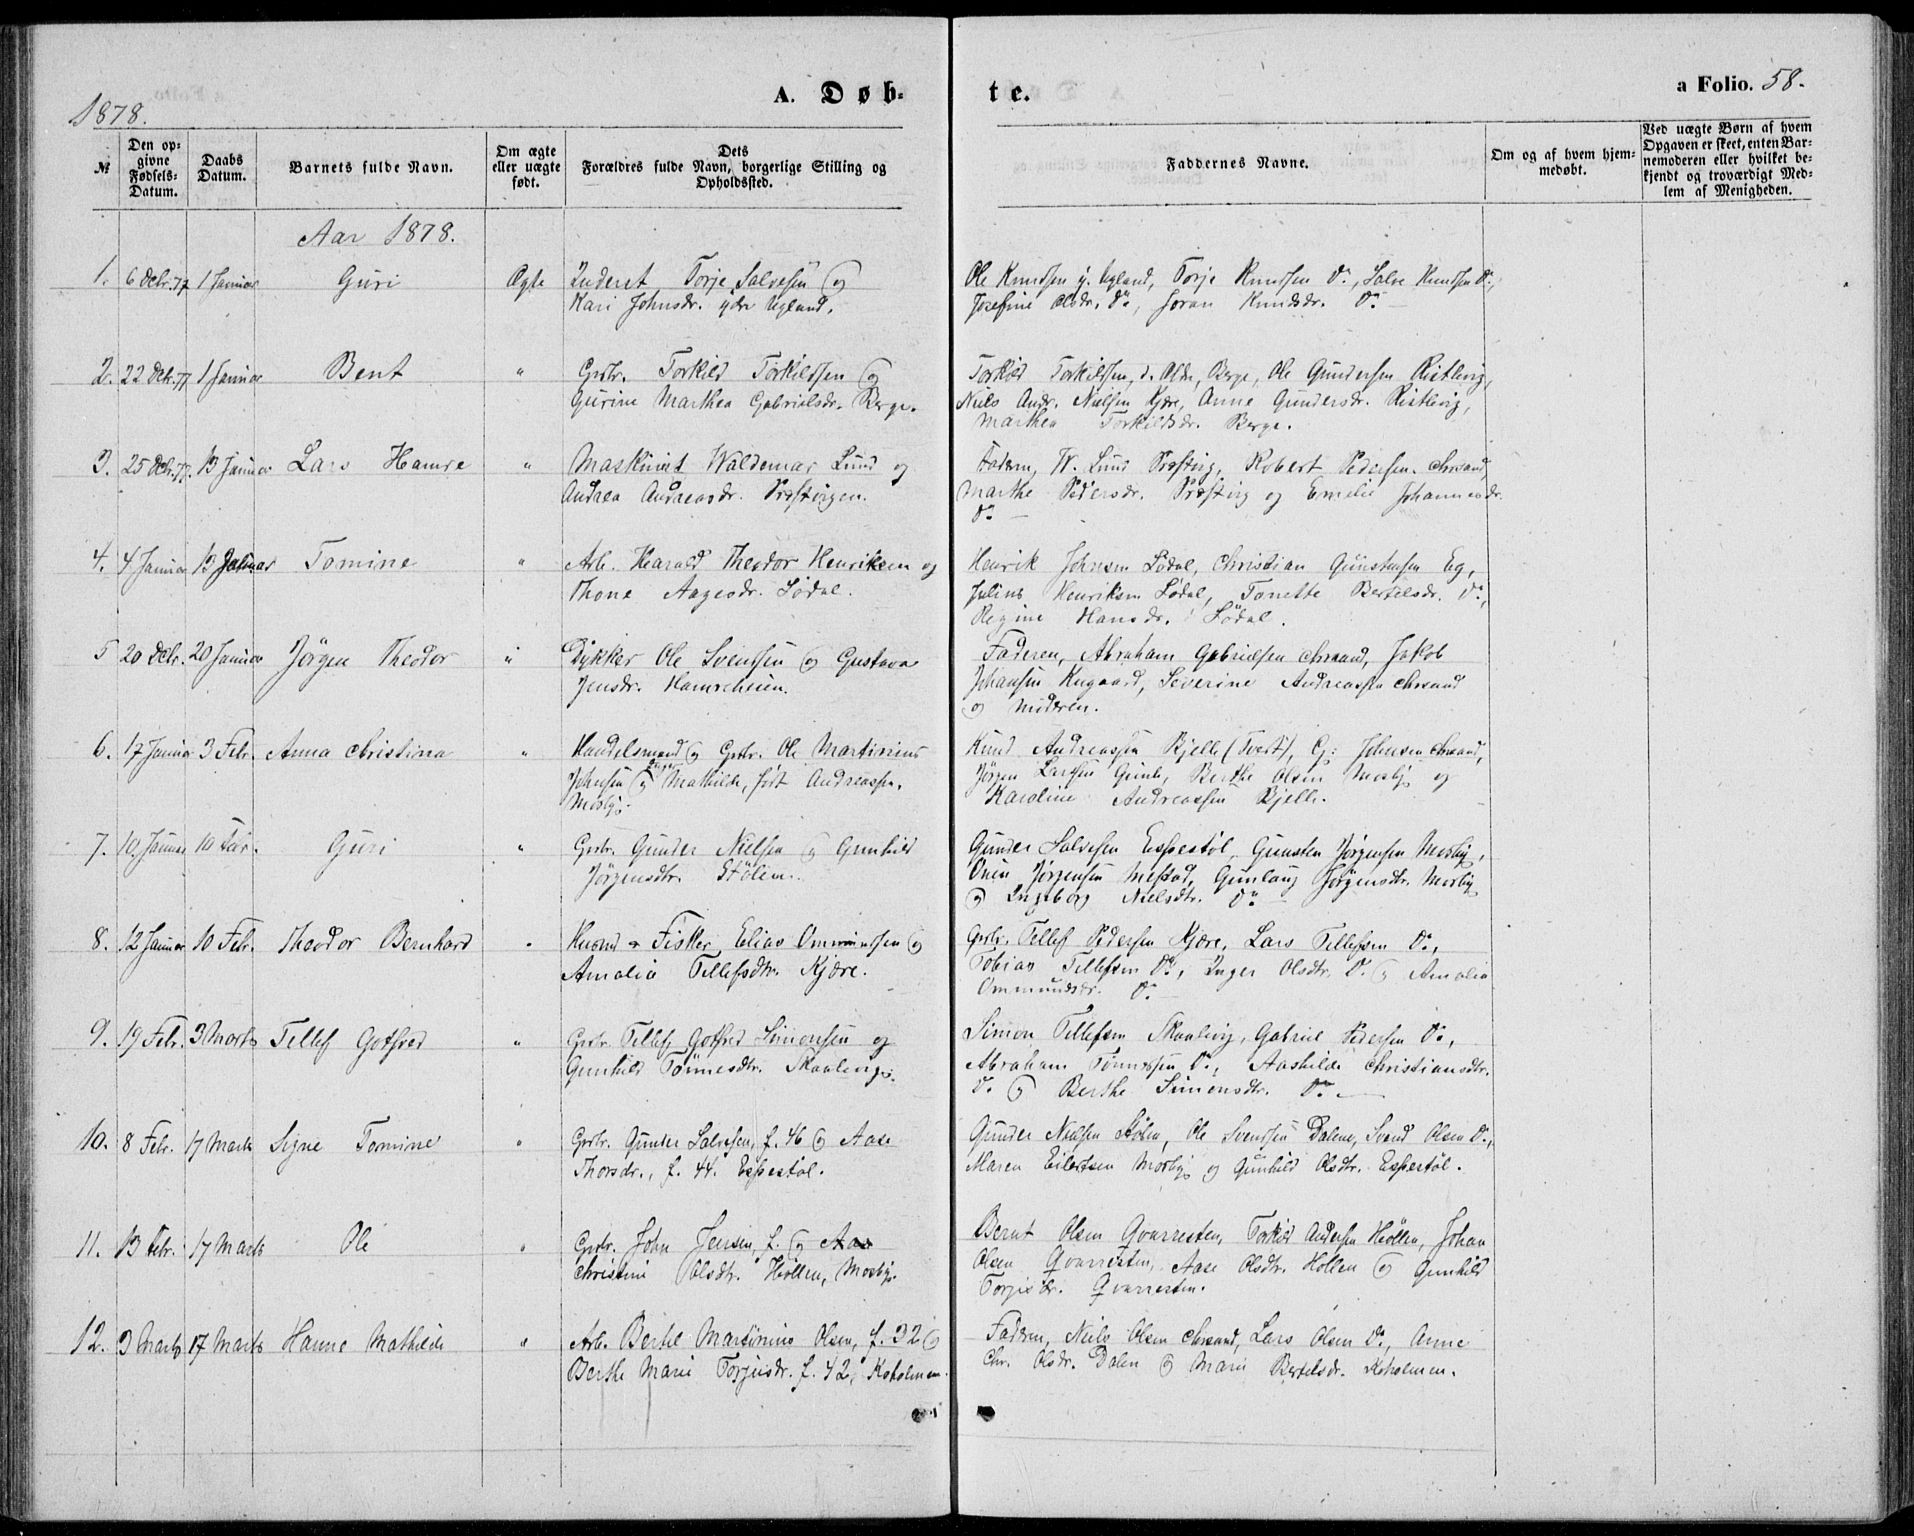 1878.
A. Døb-
te.
a Folio. 58.
№
Den op-
givne
Fødsels-
Datum.
Daabs
Datum.
Barnets fulde Navn.
Om ægte
eller uægte
født.
Dets
Forældres fulde Navn, borgerlige Stilling og
Opholdssted.
Faddernes Navne.
Om og af hvem hjem-
medøbt.
Ved uægte Børn af hvem
Opgaven er skeet, enten Bar-
nemoderen eller hvilket be-
kjendt og troværdigt Med-
lem af Menigheden.
Aar 1878.
1. 6 Dcbr. 77 1 Januar Guri Ægte Inderst Torje Salvesen og
Kari Johnsdr. ydre Ugland.
Ole Knudsen y. Ugland, Torje Knudsen Do., Salve Knudsen Do.,
Josefine Olsdr. Do., Joran Knudsdr. Do.
2. 22 Dcbr. 77 1 Januar Bent " Grbr. Torkild Torkildsen og
Gurine Marthea Gabrielsdr. Berge.
Torkild Torkildsen, d. Ældre, Berge, Ole Gundersen Ristevig,
Niels Andr. Nielsen Kjære, Anne Gundersdr. Ristevig,
Marthea Torkildsdr. Berge.
3. 25 Dcbr. 77. 13 Januar Lars Hamre " Maskinist Waldemar Lund og
Andrea Andreasdr. Præstvigen.
Faderen, W. Lund Præstvig, Robert Pedersen Chrsand,
Marthe Pedersdr. Præstvig og Emelie Johannesdr.
Do.
4. 4 Januar 13 Januar Tomine " Arb. Harald Theodor Henriksen og
Thone Aagesdr. Lødal.
Henrik Johnsen Lødal, Christian Gunstensen Eg,
Julius Henriksen Lødal, Tonette Bertelsdr. Do.,
Regine Hansdr. Lødal.
5 20 Dcbr. 20 Januar Jörgen Theodor " Dykker Ole Svensen og Gustava
Jensdr. Hamreheien.
Faderen, Abraham Gabrielsen Chrsand, Jakob
Johansen Kugaard, Severine Andreassen Chrsand
og Moderen.
6. 17 Januar 3 Febr. Anna Christina " Handelsmand og Grbr. Ole Martinius
Johnsen og Inger Mathilde, født Andreassen,
Mosby.
Knud Andreassen Bjelle (Tveit), G. Johnsen Chrsand,
Jörgen Larsen Gumle, Berthe Olsen Mosby og
Karoline Andreassen Bjelle.
7. 10 Januar 10 Febr. Guri " Grbr. Gunder Nielsen og Gunhild
Jörgensdtr. Stölen.
Gunder Salvesen Espestöl, Gunsten Jörgensen Mosby,
Onen Jörgensen Mestad, Gunlaug Jörgensdtr. Mosby
og Ingeborg Nielsdtr. Do.
8. 12 Januar 10 Febr. Theodor Bernhard " Husmd & Fisker Elias Ommundsen og
Amalia Tellefsdtr. Kjære.
Grbr. Tellef Pedersen Kjære, Lars Tellefsen Do.,
Tobias Tellefsen Do., Inger Olsdtr. Do. og Amalia
Ommundsdr. Do.
9. 19 Febr. 3 Marts Tellef Gotfred " Grbr. Tellef Gotfred Simonsen og
Gunhild Tönnesdtr. Skaalevig.
Simon Tellefsen Skaalevig, Gabriel Pedersen Do.,
Abraham Tönnessen Do., Aashilde Christiansdtr.
Do. og Berthe Simonsdtr. Do.
10. 8 Febr. 17 Marts Signe Tomine " Grbr. Gunder Salvesen, f. 46 og Aase
Thorsdr., f. 44. Espestöl.
Gunder Nielsen Stölen, Ole Svensen Dalene, Svend Olsen Do.,
Maren Eilertsen Mosby og Gunhild Olsdtr. Espestöl.
11. 13 Febr. 17 Marts Ole " Grbr. John Jensen, f. og Aas
Christine Olsdtr. Höllen, Mosby.
Bernt Olsen Qvarresten, Torkild Andersen Höllen, Johan
Olsen Qvarresten, Aase Olsdtr. Höllen og Gunhild
Torjusdr. Qvarresten.
12. 3 Marts 17 Marts Hanne Mathilde " Arb. Bertel Martinius Olsen, f. 32 og
Berthe Marie Torjusdr. f. 42, Koholmen.
Faderen, Niels Olsen Chrsand, Lars Olsen Do., Anne
Chr. Olsdr. Dalen og Marie Bertelsdr. Koholmen.